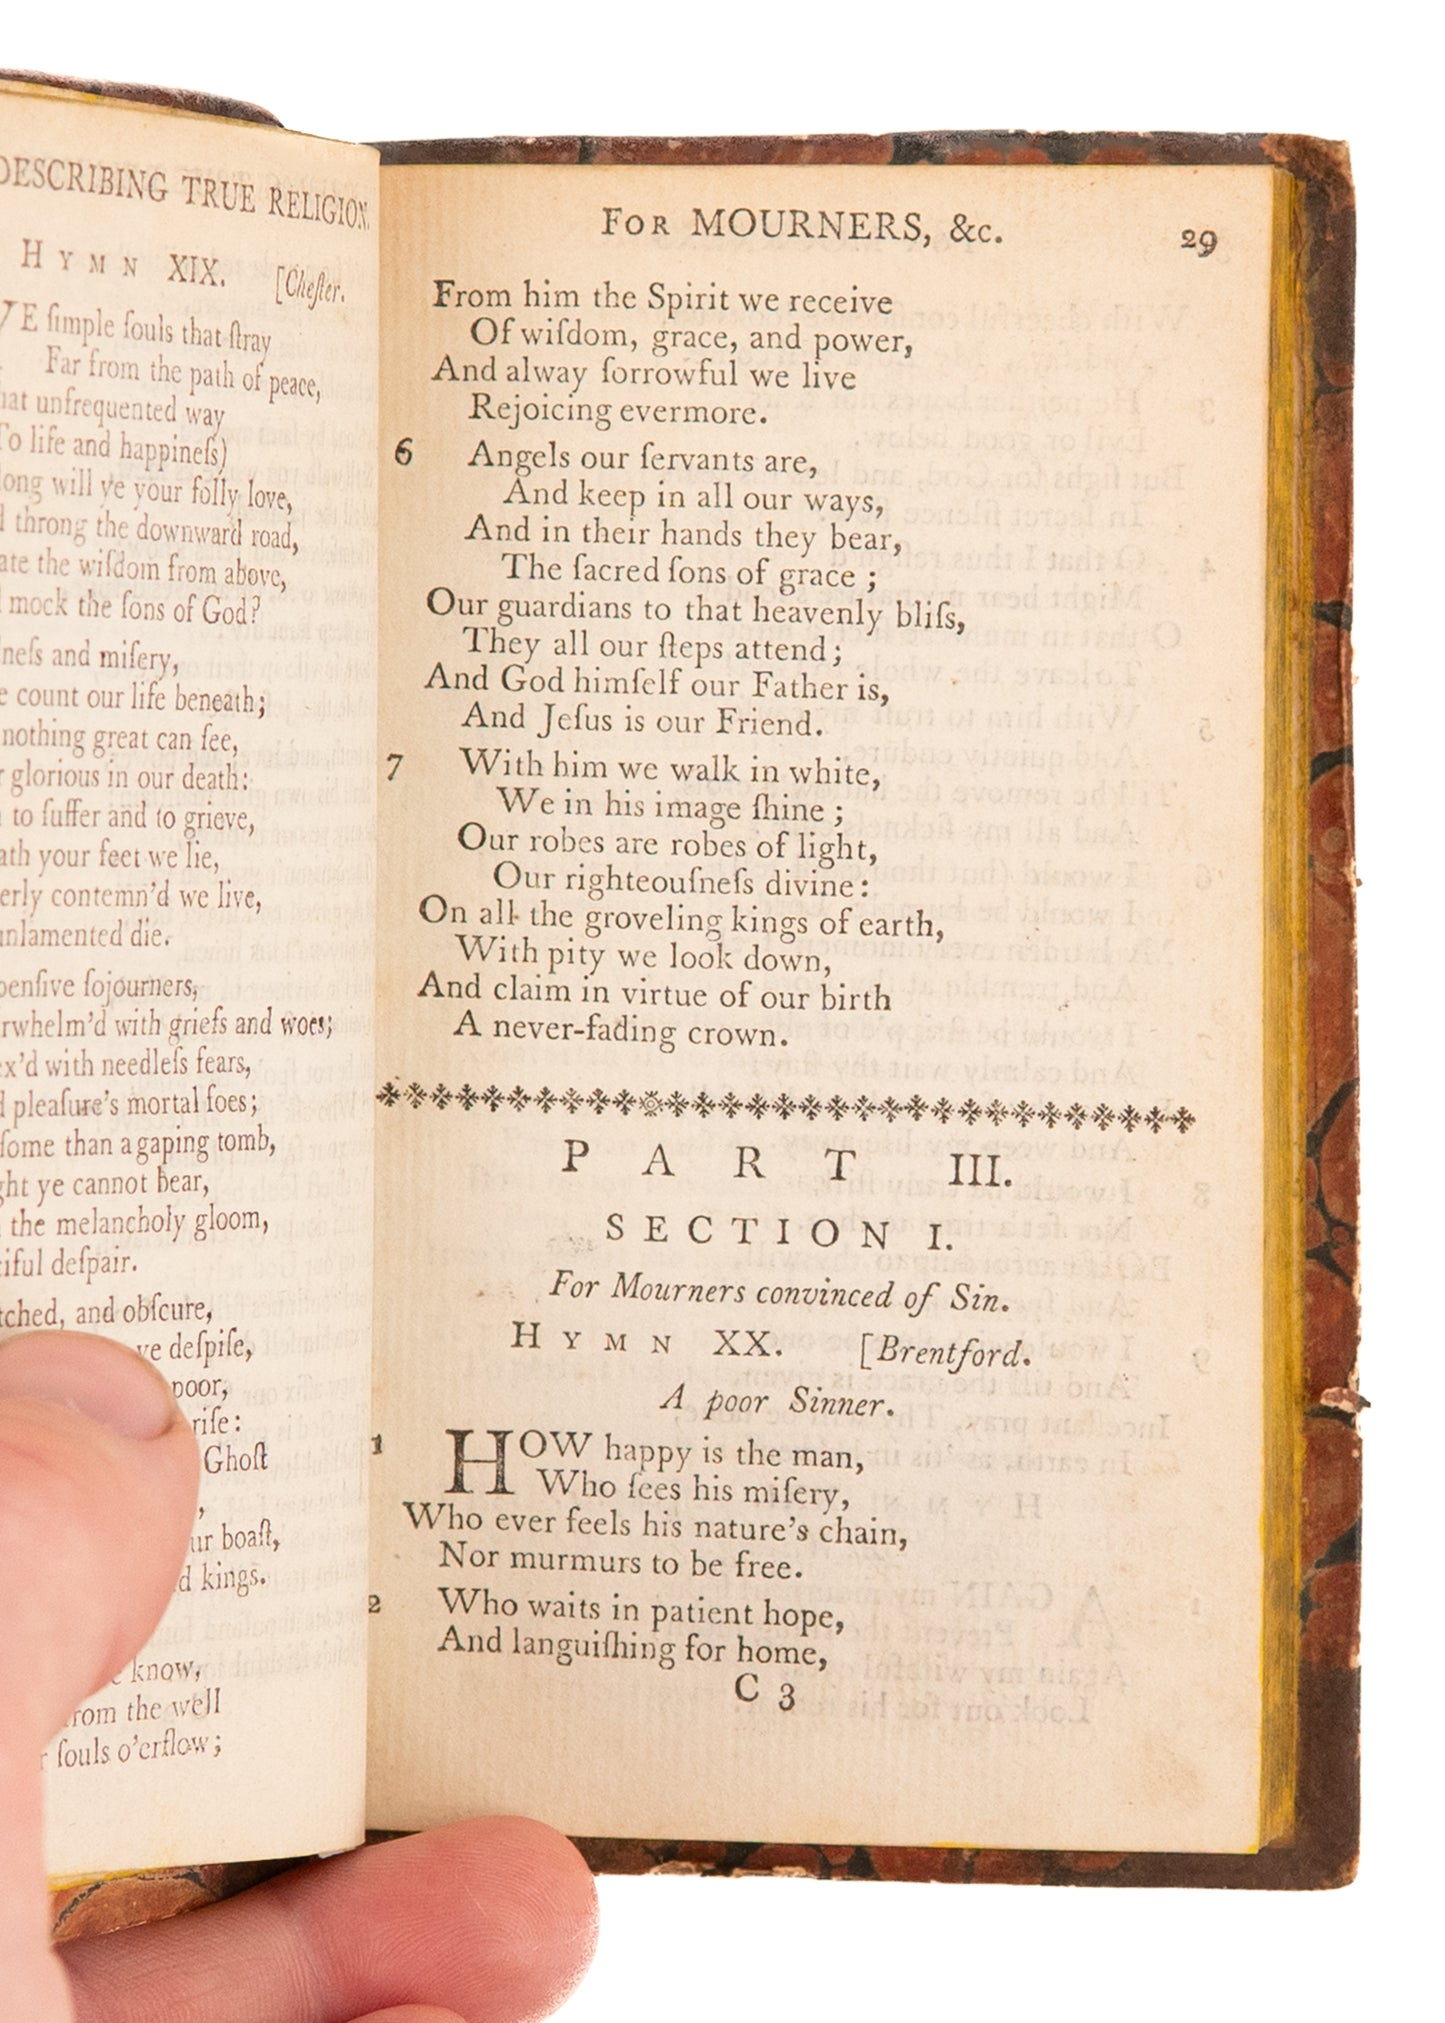 DESCRIBING TRUE RELIGION.
HYMN XIX. [Cheſter.
YE ſimple ſouls that ſtray
Far from the path of peace,
unfrequented way
To life and happineſs)
long will ye your folly love,
throng the downward road,
the wiſdom from above,
mock the ſons of God?
and miſery,
count our life beneath;
nothing great can ſee,
glorious in our death:
to ſuffer and to grieve,
your feet we lie,
contemn'd we live,
unlamented die.
penſive ſojourners,
with griefs and woes;
with needleſs fears,
pleaſure's mortal foes;
than a gaping tomb,
ye cannot bear,
the melancholy gloom,
deſpair.
and obſcure,
ye deſpiſe,
poor,
riſe:
Ghoſt
boaſt,
kings.
know,
from the well
ſouls o'erflow;
FOR MOURNERS, &c. 29
From him the Spirit we receive
Of wiſdom, grace, and power,
And alway ſorrowful we live
Rejoicing evermore.
6 Angels our ſervants are,
And keep in all our ways,
And in their hands they bear,
The ſacred ſons of grace;
Our guardians to that heavenly bliſs,
They all our ſteps attend;
And God himſelf our Father is,
And Jeſus is our Friend.
7 With him we walk in white,
We in his image ſhine;
Our robes are robes of light,
Our righteouſneſs divine:
On all the groveling kings of earth,
With pity we look down,
And claim in virtue of our birth
A never-fading crown.
PART III.
SECTION I.
For Mourners convinced of Sin.
HYMN XX. [Brentford.
A poor Sinner.
1 HOW happy is the man,
Who ſees his miſery,
Who ever feels his nature's chain,
Nor murmurs to be free.
2 Who waits in patient hope,
And languiſhing for home,
C 3